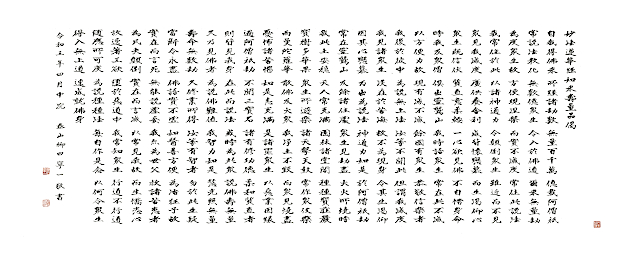 妙法蓮華経如来壽量品偈
自我得佛来 所経諸劫数 無量百千萬 億載阿僧祇
常説法教化 無数億衆生 令入於佛道 爾来無量劫
為度衆生故 方便現涅槃 而實不滅度 常住此説法
我常住於此 以諸神通力 令顛倒衆生 雖近而不見
衆見我滅度 廣供養舎利 咸皆懐戀慕 而生渇仰心
衆生既信伏 質直意柔軟 一心欲見佛 不自惜身命
時我及衆僧 倶出靈鷲山 我時語衆生 常在此不滅
以方便力故 現有滅不滅 餘國有衆生 恭敬信樂者
我復於彼中 為説無上法 汝等不聞此 但謂我滅度
我見諸衆生 没在於苦海 故不為現身 令其生渇仰
因其心戀慕 乃出為説法 神通力如是 於阿僧祇劫
常在靈鷲山 及餘諸住處 衆生見劫盡 大火所焼時
我此土安穏 天人常充満 園林諸堂閣 種種寶荘厳
寶樹多華果 衆生所遊樂 諸天撃天鼓 常作衆伎樂
雨曼陀羅華 散佛及大衆 我浄土不毀 而衆見焼盡
憂怖諸苦悩 如是悉充満 是諸罪衆生 以悪業因縁
過阿僧祇劫 不聞三寶名 諸有修功徳 柔和質直者
則皆見我身 在此而説法 或時為此衆 説佛壽無量
久乃見佛者 為説佛難値 我智力如是 慧光照無量
壽命無数劫 久修業所得 汝等有智者 勿於此生疑
當断令永盡 佛語實不虚 如醫善方便 為治狂子故
實在而言死 無能説虚妄 我亦為世父 救諸苦患者
為凡夫顛倒 實在而言滅 以常見我故 而生憍恣心
放逸著五欲 堕於悪道中 我常知衆生 行道不行道
随應所可度 為説種種法 毎自作是念 以何令衆生
得入無上道 速成就佛身
令和五年四月中浣 春山柳田寧一敬書